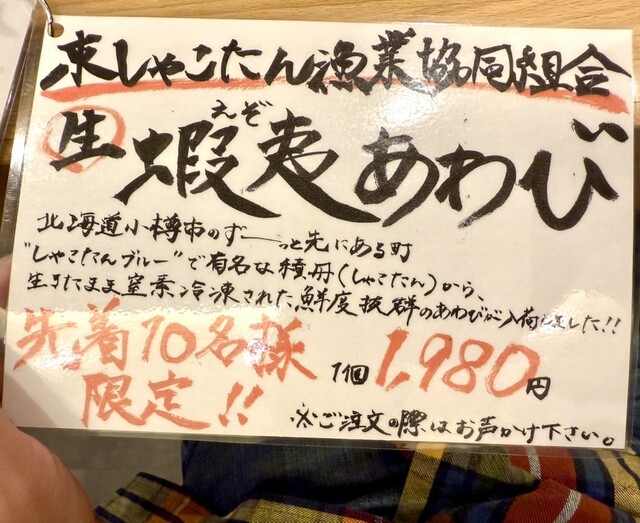 東しゃこたん漁業協同組合
えぞ
生蝦夷あわび
北海道小樽市のずーっと先にある町
"しゃこたんブルー"で有名な積丹(しゃこたん)から、
生きたまま窒素冷凍された鮮度抜群のあわびが入荷しました!!
先着10名様
限定!!
1個1,980円
※ご注文の際はお声かけ下さい。